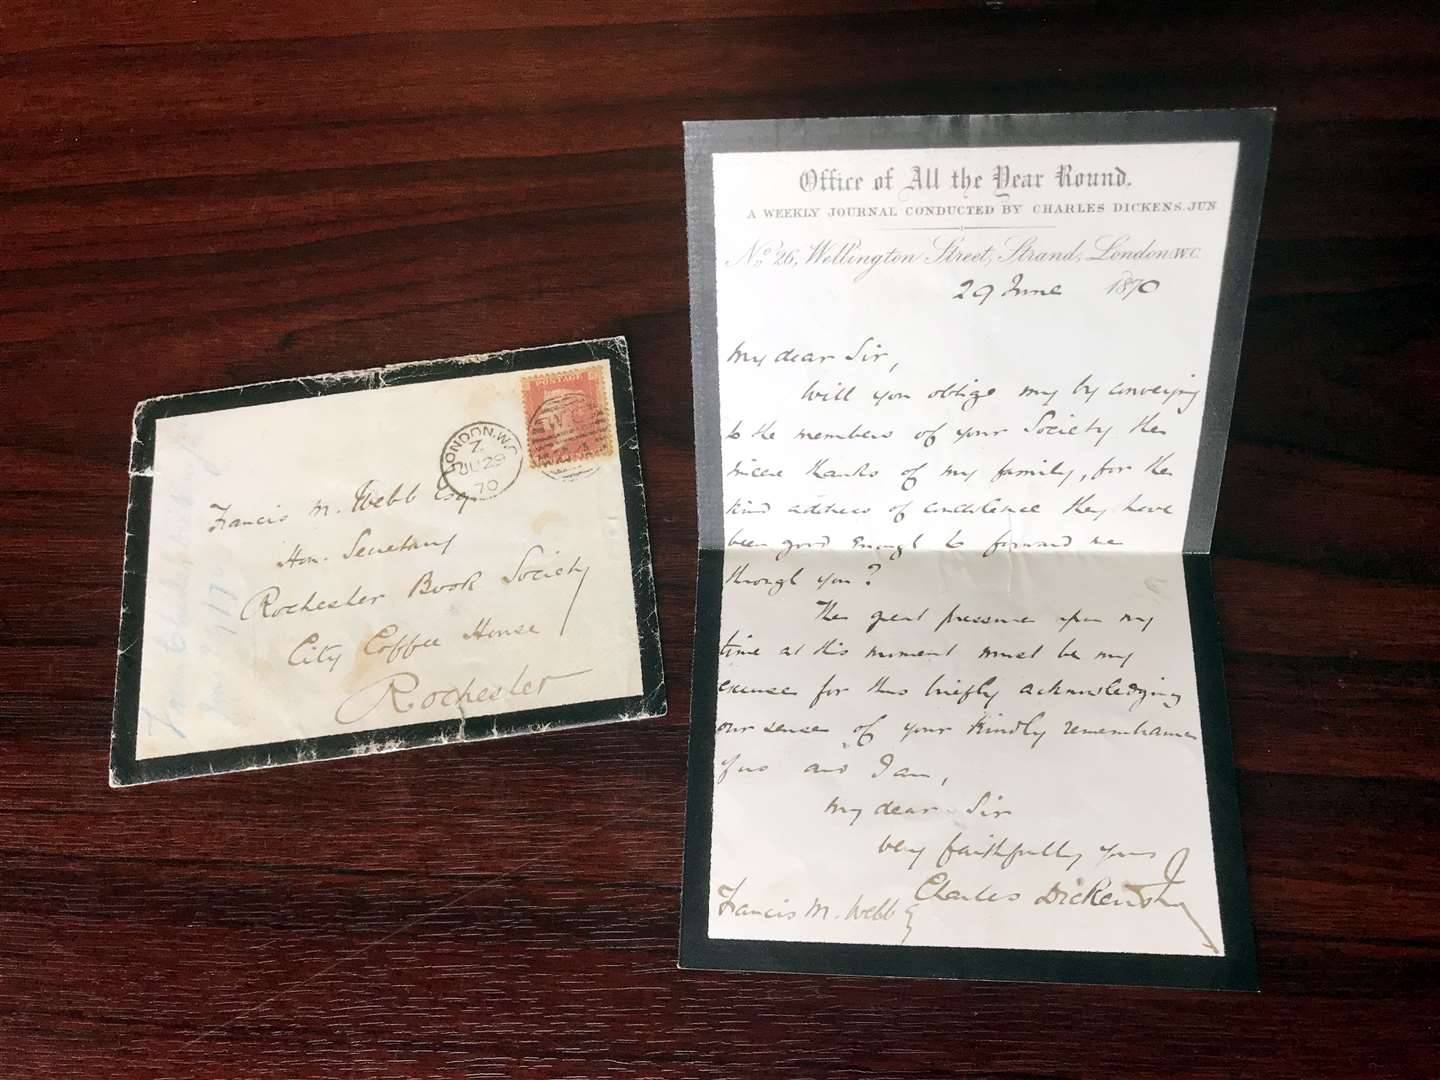 Francis M. Webb Esq.
Hon. Secretary
Rochester Book Society
City Coffee House
Rochester
POSTAGE
LONDON. W.C
Z
JU 29
70
Office of All the Year Round.
A WEEKLY JOURNAL CONDUCTED BY CHARLES DICKENS. JUN
No. 26, Wellington Street, Strand, London. W.C.
29 June 1870
My dear Sir,
Will you oblige my by conveying
to the members of your Society the
sincere thanks of my family, for the
kind address of condolence they have
been good enough to forward me
through you?
The great pressure upon my
time at this moment must be my
excuse for thus briefly acknowledging
our sense of your kindly remembrance
and I am,
My dear Sir
very faithfully yours
Charles Dickens Jnr
Francis M. Webb Esq